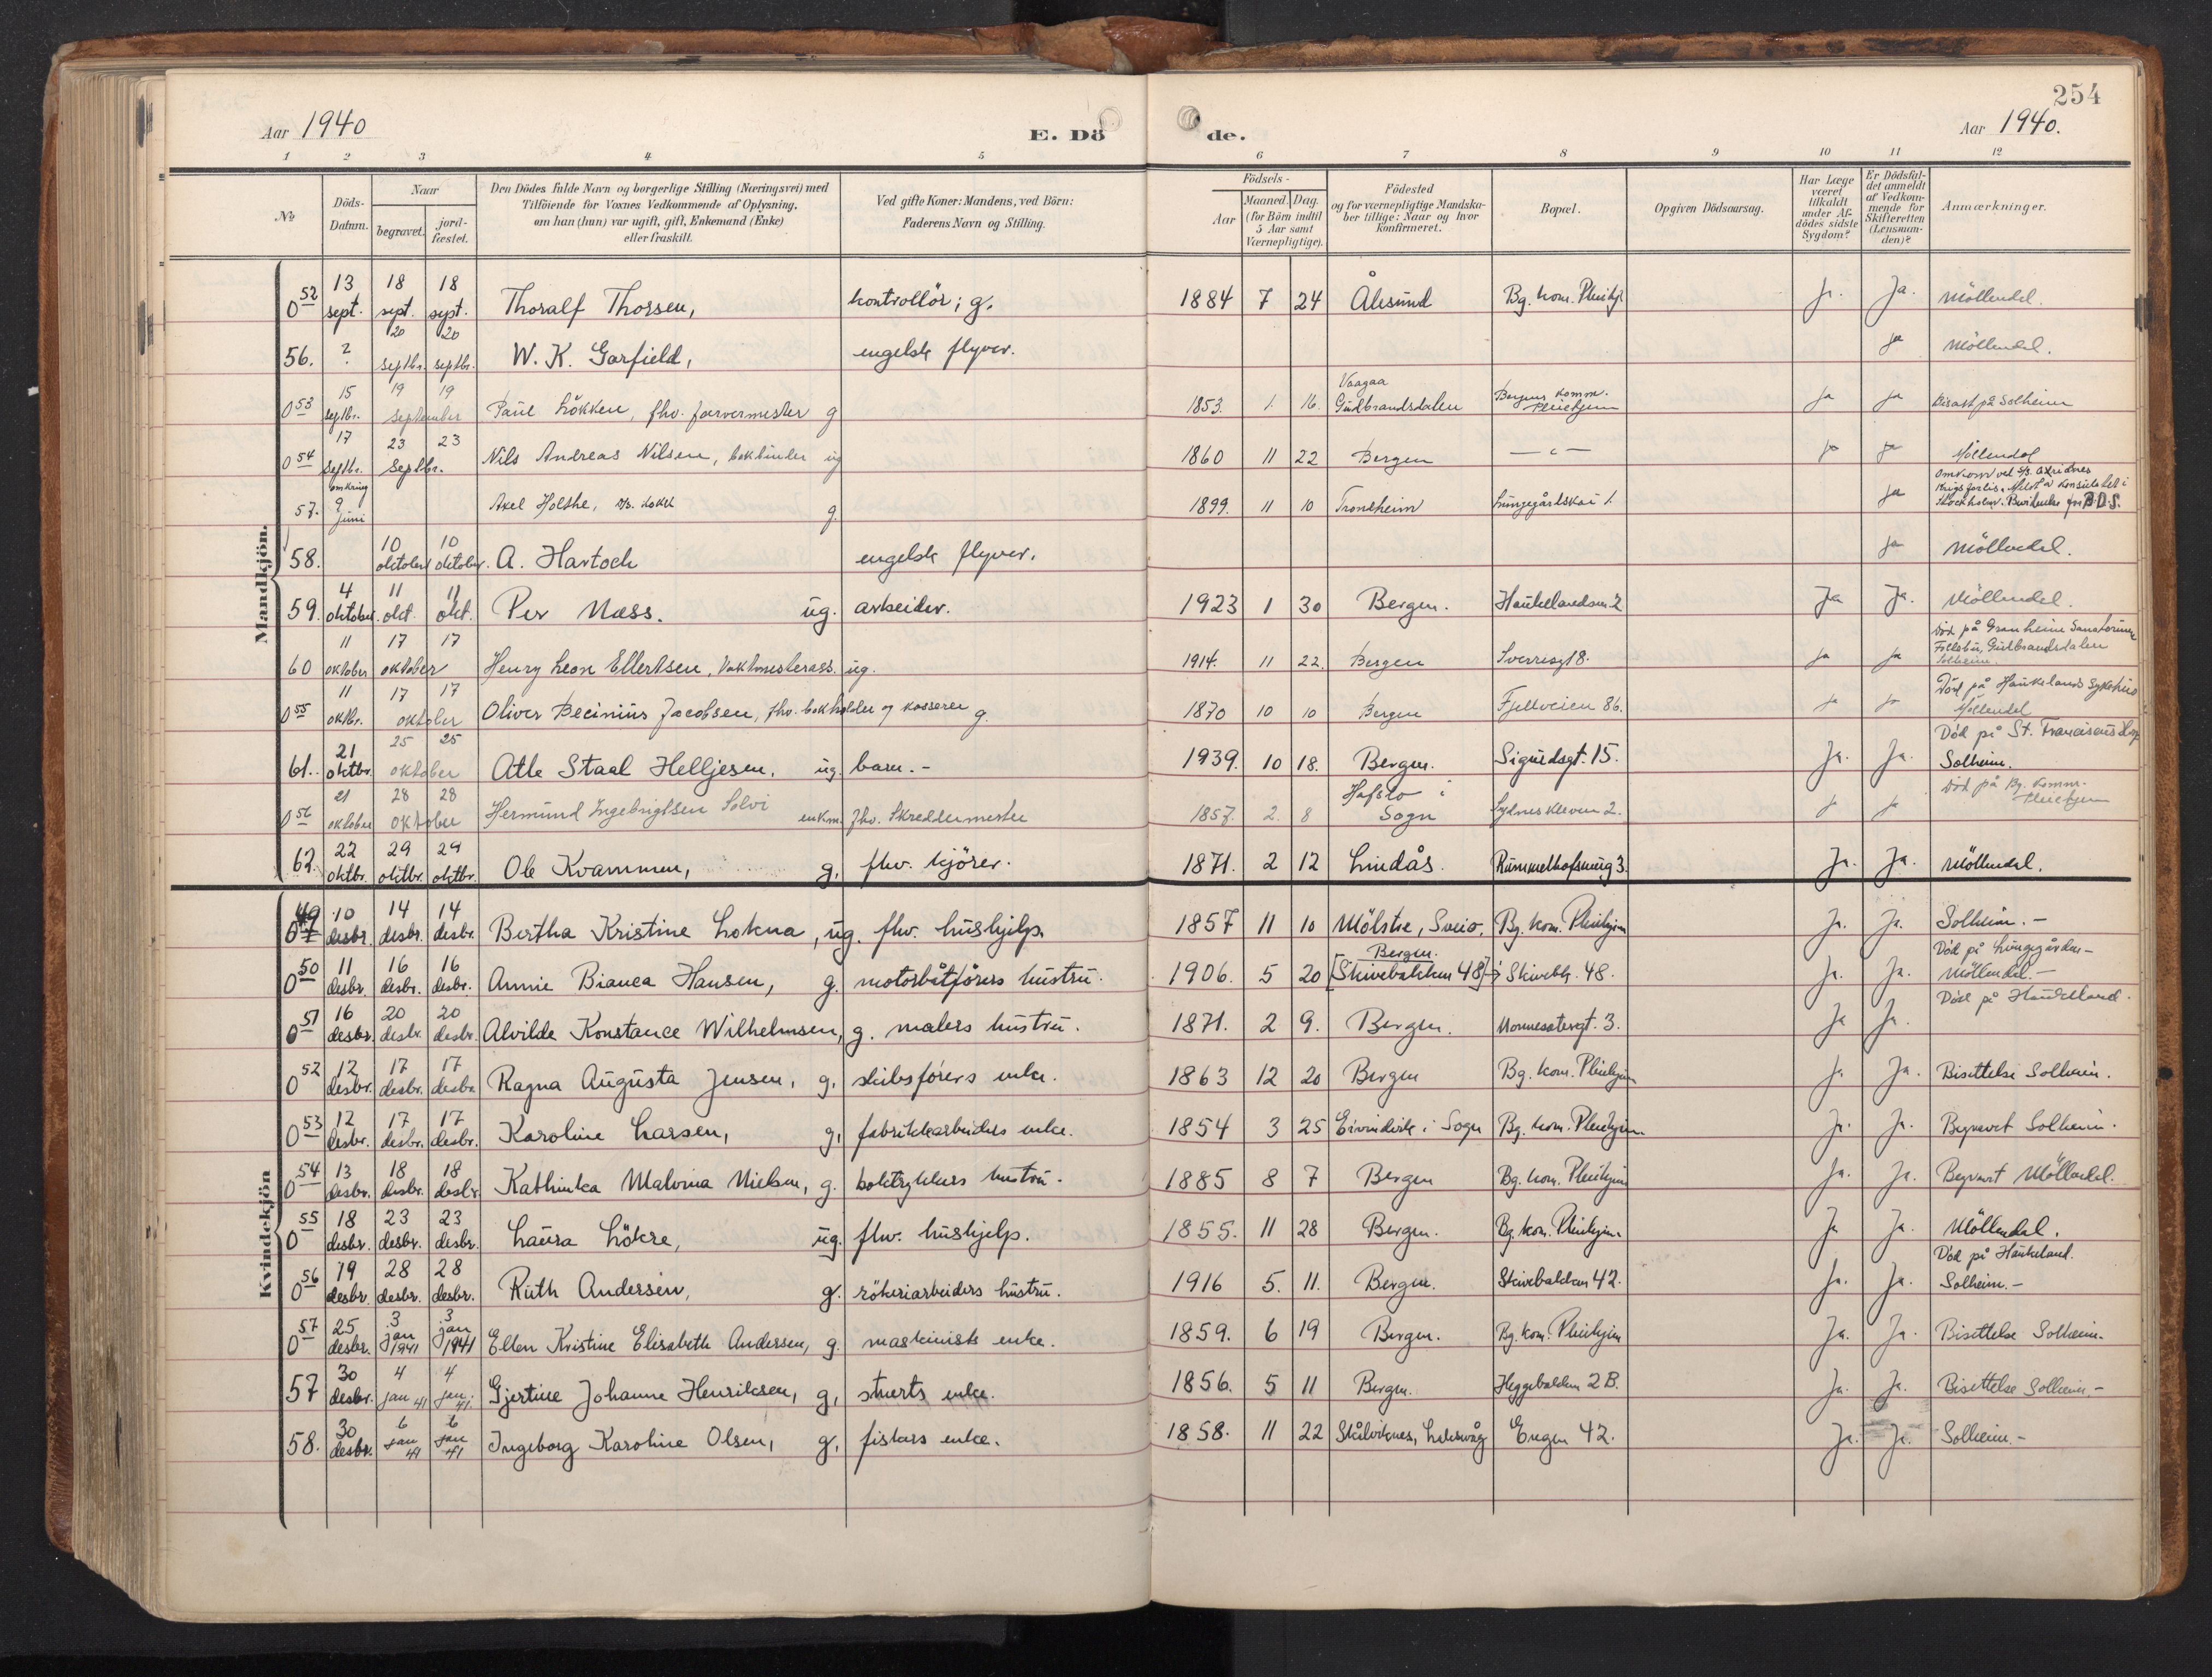 254
Aar 1940
E. Dö de.
Aar 1940.
1 2 3 4 5 6 7 8 9 10 11 12
№
Döds-Datum.
Naar begravet. jordfæstet.
Den Dödes fulde Navn og borgerlige Stilling (Næringsvei) med Tilföiende for Voxnes Vedkommende af Oplysning, om han (hun) var ugift, gift, Enkemand (Enke) eller fraskilt.
Ved gifte Koner: Mandens, ved Börn: Faderens Navn og Stilling.
Födsels- Aar Maaned. Dag. (for Börn indtil 5 Aar samt Værnepligtige).
Födested og for værnepligtige Mandskaber tillige: Naar og hvor Konfirmeret.
Bopæl.
Opgiven Dödsaarsag.
Har Læge været tilkaldt under Afdödes sidste Sygdom?
Er Dödsfaldet anmeldt af Vedkommende for Skifteretten (Lensmanden)?
Anmærkninger.
Mandkjön.
0 52 13 sept. 18 sept. 18 sept. Thoralf Thorsen, kontrollör; g. 1884 7 24 Ålesund Bg. kom. Pleiehj. Ja. Ja. Möllendal.
56. ? 20 septbr. 20 septbr. W. K. Garfield, engelsk flyver. Ja Möllendal.
0 53 15 septbr. 19 19 september Paul Lökken, fhv. farvermester g 1853. 1. 16. Vaagaa Gudbrandsdalen Bergens komm. Pleiehjem Ja Ja Bisatt på Solheim
0 54 17 septbr. 23 23 septbr. Nils Andreas Nilsen, bokbinder ug 1860 11 22 Bergen — " — Ja Ja Möllendal
57. omkring 9 juni Axel Holthe, g. 1899. 11 10 Trondheim Lungegårdskai 1. Ja Omkom ved krigsforlis. Stockholm. B.D.S.
58. 10 oktober 10 oktober. A. Hartoch engelsk flyver. Ja Möllendal.
59. 4 oktober. 11 okt. 11 okt. Per Næss. ug. arbeider. 1923 1 30 Bergen. Haukelandsv. 2 Ja Ja. Möllendal.
60 11 oktober 17 17 oktober Henry Leon Ellertsen, vaktmesterass. ug. 1914. 11 22. Bergen Sverresgt 8. Ja Ja Död på Granheim Sanatorium Follebu, Gudbrandsdalen Solheim.
0 55 11 oktbr. 17 17 oktober Oliver Decinius Jacobsen, fhv. bokholder og kasserer g. 1870 10 10 Bergen Fjellveien 86. Ja Ja Död på Haukelands Sykehus Möllendal
61. 21 oktbr. 25 25 oktober Atle Staal Helljesen. ug. barn.- 1939. 10 18. Bergen. Sigurdsgt. 15. Ja. Ja. Död på St. Franciscus Hosp Solheim.
0 56 21 oktober 28 28 oktober Hermund Ingebrigtsen Solvi enkm. fhv. Skreddermester 1857. 2. 8 Hafslo i Sogn Sydneskleven 2. Ja Ja Död på Bg. Komm. Pleiehjem
62. 22 oktbr. 29 oktbr. 29 oktbr. Ole Kvammen, g. fhv. kjörer. 1871. 2 12 Lindås. Rummelhofsmug 3. Ja. Ja. Möllendal.
Kvindekjön
0 49 10 desbr. 14 desbr. 14 desbr. Bertha Kristine Lokna, ug. fhv. hushjelp. 1857 11 10 Mölstre, Sveio. Bg. kom. Pleiehjem Ja. Ja. Solheim.-
0 50 11 desbr. 16 desbr. 16 desbr. Annie Bianca Hansen, g. motorbåtförers hustru. 1906. 5 20 Bergen. [Skivebakken 48] Skivebk. 48. Ja. Ja. Död på Lungegården- Möllendal.-
0 51 16 desbr. 20 desbr. 20 desbr. Alvilde Konstance Wilhelmsen, g. malers hustru. 1871. 2 9. Bergen. Nonnesetergt. 3. Ja Ja. Död på Haukeland.
0 52 12 desbr. 17 desbr. 17 desbr. Ragna Augusta Jensen, g, skibsförers enke. 1863 12 20 Bergen Bg. kom. Pleiehjem Ja. Ja. Bisettelse Solheim.
0 53 12 desbr. 17 desbr. 17 desbr. Karoline Larsen, g, fabrikkarbeiders enke. 1854 3 25 Eivindvik i Sogn Bg. kom. Pleiehjem. Ja. Ja. Begravet Solheim.
0 54 13 desbr. 18 desbr. 18 desbr Kathinka Malvina Nielsen, g. boktrykkers hustru. 1885 8 7 Bergen Bg. kom. Pleiehjem Ja. Ja. Begravet Möllendal.
0 55 18 desbr. 23 desbr. 23 desbr. Laura Lökre, ug. fhv. hushjelp. 1855. 11 28 Bergen. Bg. kom. Pleiehjem. Ja Ja. Möllendal.
0 56 19 desbr. 28 desbr. 28 desbr. Ruth Andersen, g. rökeriarbeiders hustru. 1916 5. 11. Bergen. Skivebakken 42. Ja. Ja. Död på Haukeland. Solheim.-
0 57 25 desbr. 3 jan 1941 3 jan 1941 Ellen Kristine Elisabeth Andersen, g. maskinists enke. 1859. 6 19 Bergen. Bg. kom. Pleiehjem Ja. Ja. Bisettelse Solheim.
57 30 desbr. 4 jan 41 4 jan. 41. Gjertine Johanne Henriksen, g, stuerts enke. 1856. 5 11 Bergen. Heggebakken 2B. Ja. Ja. Bisettelse Solheim.-
58. 30 desbr. 6 jan 41 6 jan 41 Ingeborg Karoline Olsen, g, fiskers enke. 1858. 11 22 Skålviknes, Laksevåg Engen 42. Ja. Ja. Solheim.-